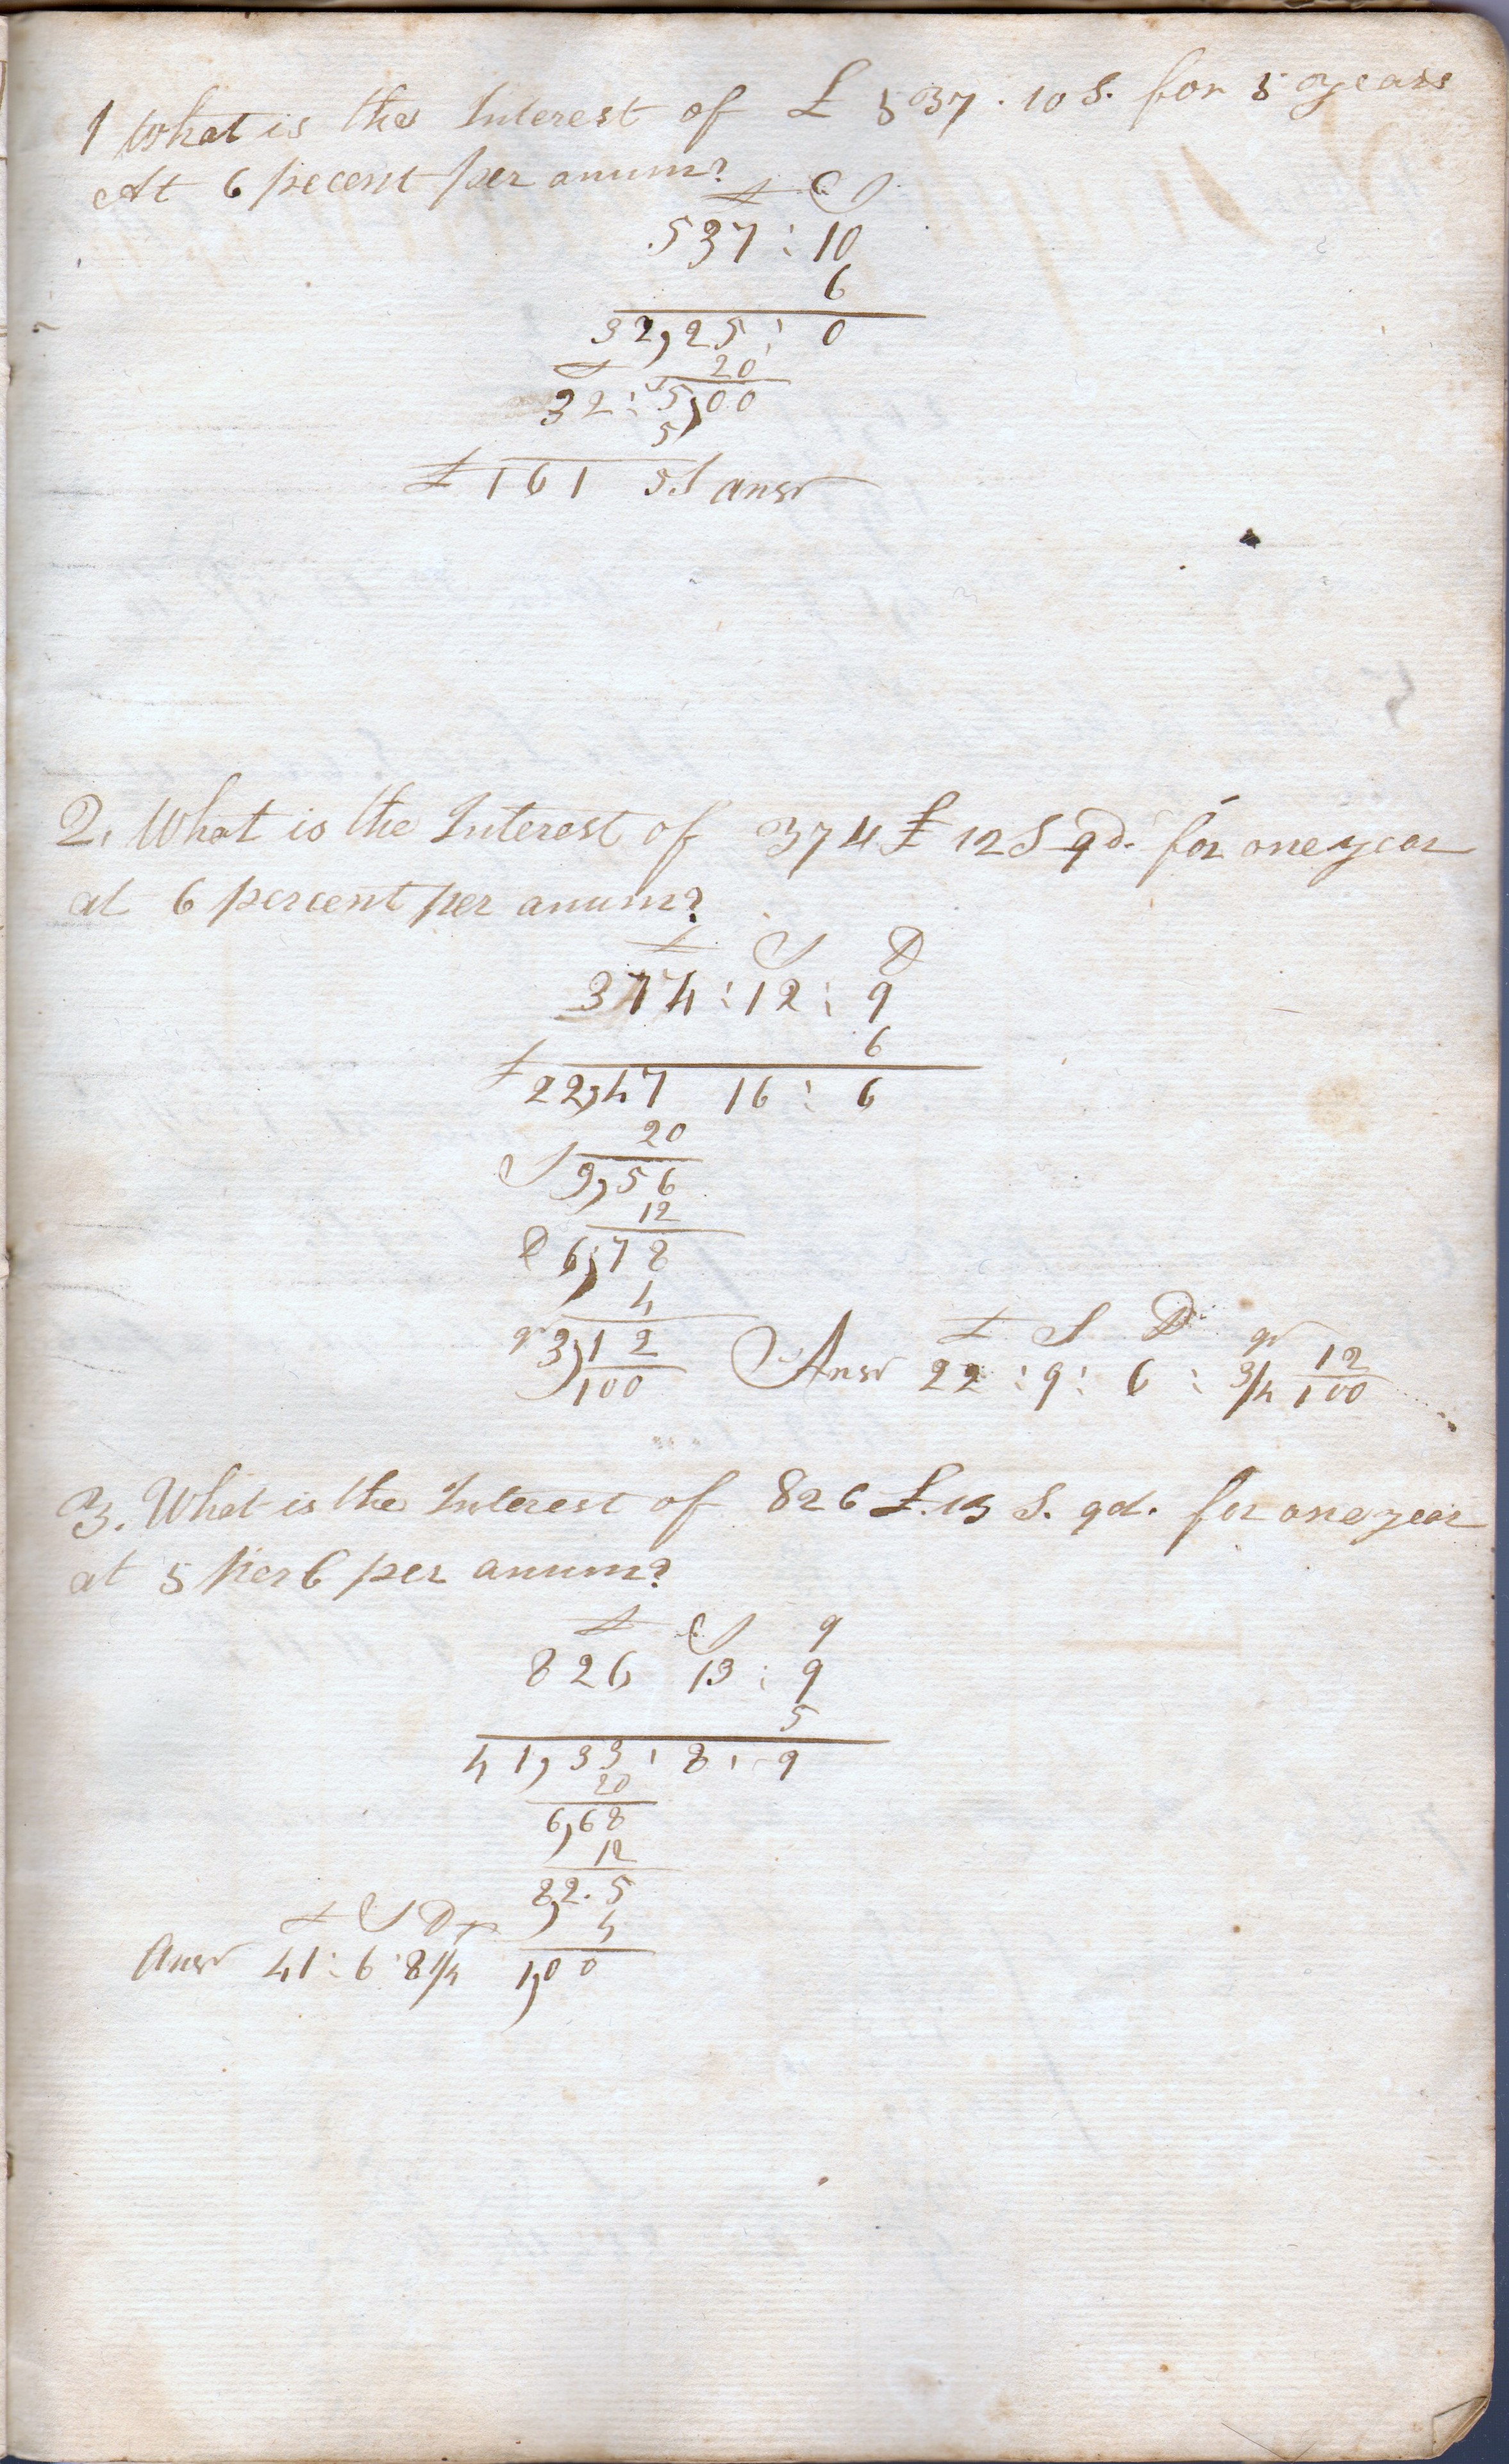 1 What is the Interest of £ 537. 10 S. for 5 years
At 6 pecent per anum?
£ S
537 : 10
6
32,25 : 0
20
£ S
32 : 5,00
5
£ 161 5 S ansr
2. What is the Interest of 374 £ 12 S 9d. for one year
at 6 percent per anum?
£ S D
374 : 12 : 9
6
£ 22,47 16 : 6
20
S 9,56
12
D 6,78
4
qr 3,12
100
£ S D qr
Ansr 22 : 9 : 6 : 3/4 12/100
3. What is the Interest of 826 £. 13 S. 9d. for one year
at 5 per 6 per anum?
£ S 9
826 13 : 9
5
41,33 : 8 : 9
20
6,68
12
8,2.5
4
£ S D
Ansr 41 : 6 : 8 1/4 1,00